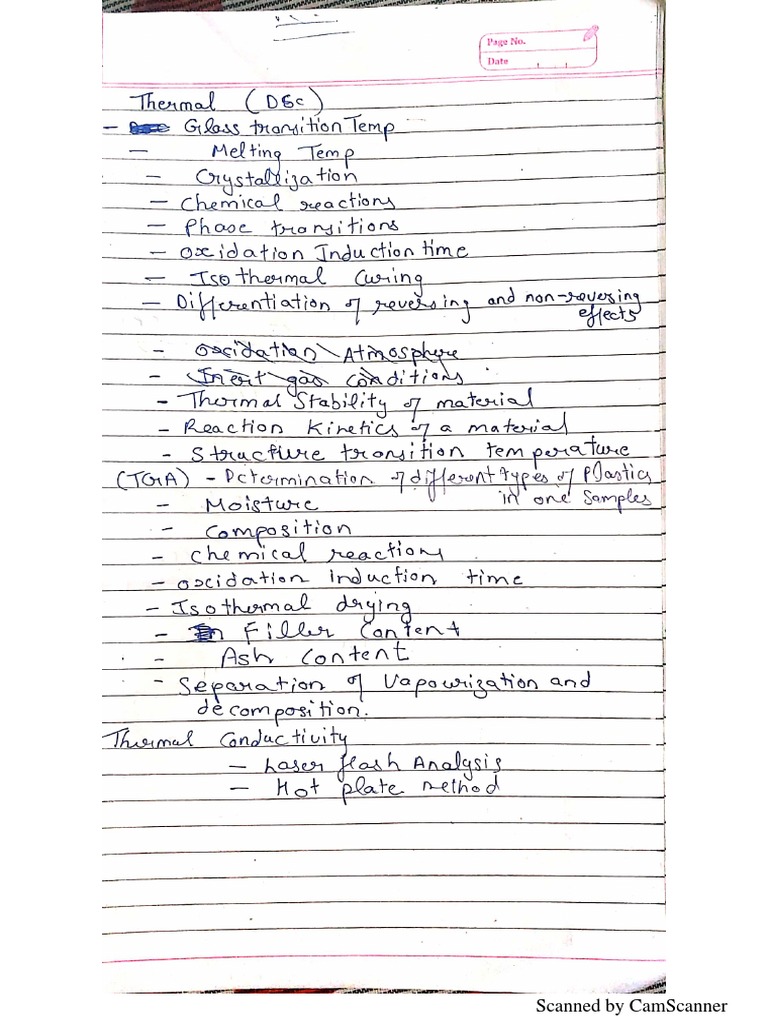 Page No.
Date
Thermal (DSC)
- Glass transition Temp
- Melting Temp
- Crystallization
- Chemical reactions
- Phase transitions
- Oxidation Induction time
- Isothermal Curing
- Differentiation of reversing and non-reversing
effects
- Oxidation Atmosphere
- Inert gas conditions
- Thermal Stability of material
- Reaction Kinetics of a material
- Structure transition temperature
(TGA) - Determination of different types of Plastics
in one samples
- Moisture
- Composition
- Chemical reactions
- Oxidation induction time
- Isothermal drying
- Filler Content
- Ash Content
- Separation of Vapourization and
decomposition.
Thermal Conductivity
- Laser flash Analysis
- Hot plate method
Scanned by CamScanner